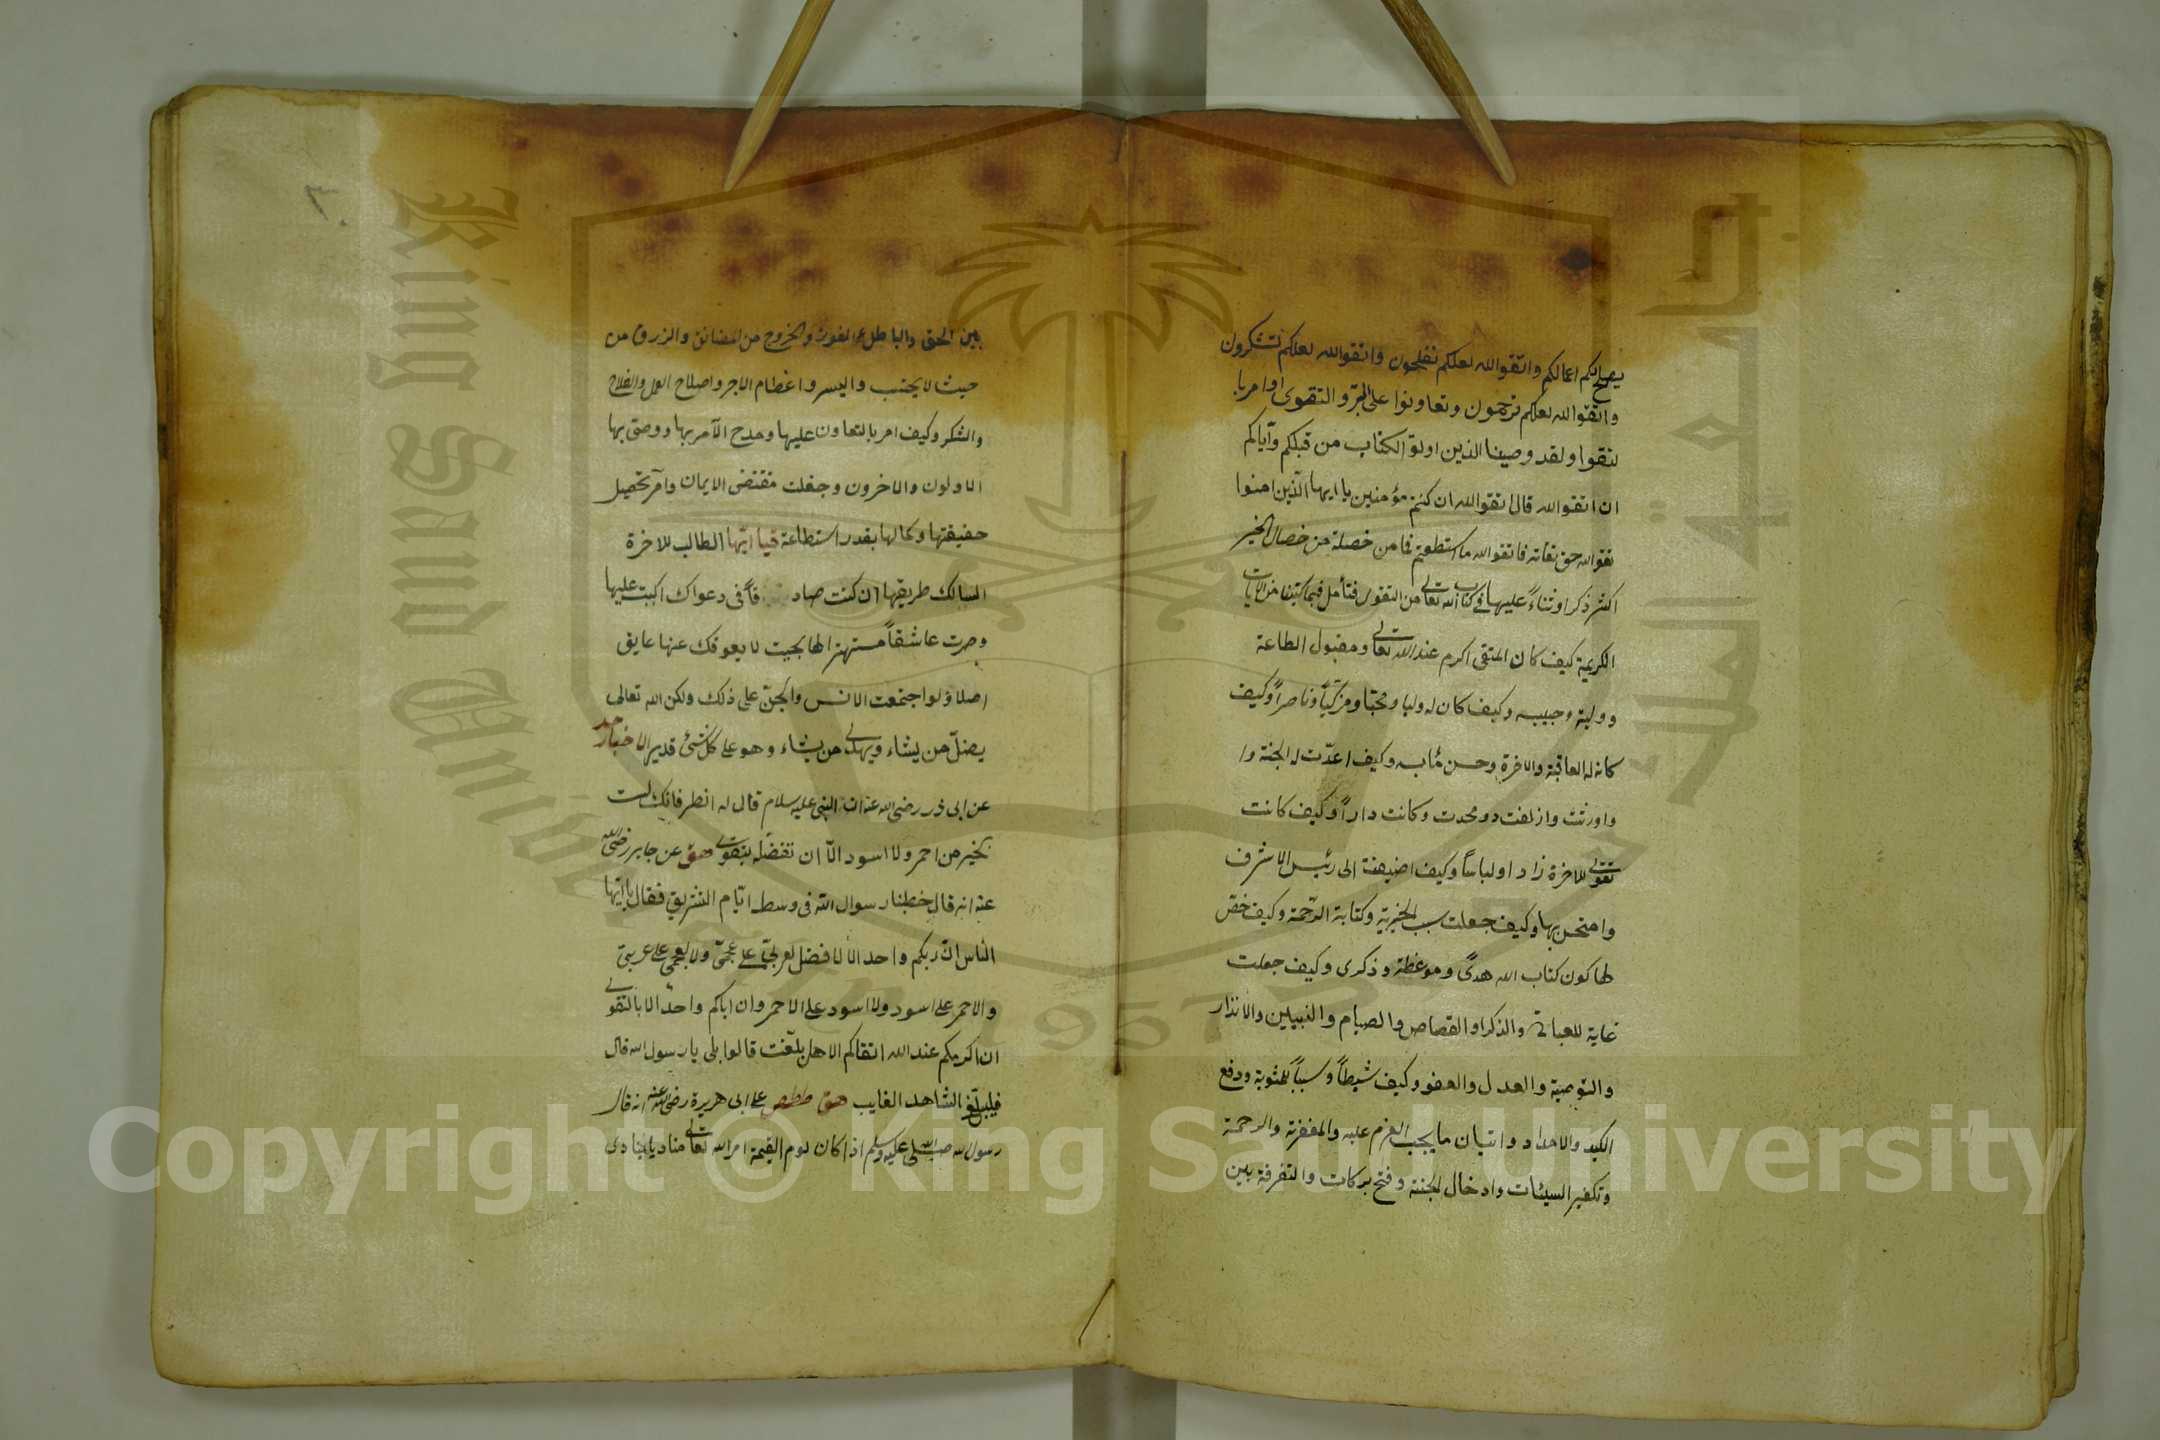 يصلح لكم اعمالكم واتقوا الله لعلكم تفلحون واتقوا الله لعلكم تشكرون
واتقوا الله لعلكم ترحمون وتعاونوا على البر والتقوى اوامر با
لتقوا ولقد وصينا الذين اوتوا الكتاب من قبلكم واياكم
ان اتقوا الله قال اتقوا الله ان كنتم مؤمنين يا ايها الذين امنوا
تقوا الله حق تقاته فاتقوا الله ما استطعتم فما من خصلة من خصال الخير
اكثر ذكرا وثناءً عليها في كتاب الله تعالى من التقوى فتأمل فيما كتبنا من الآيات
الكريمة كيف كان المتقى اكرم عند الله تعالى ومقبول الطاعة
ووليه وحبيبه وكيف كان له وليا ومحبا ومزكياً وناصراً وكيف
كانه له العاقبة والاخرة وحسن مأب وكيف اعدّت له الجنة وا
واورثت وازلفت ووعدت وكانت داراً وكيف كانت
تقوى للاخرة زادا ولباساً وكيف اضيفت الى رئيس الاشرف
وامتحن بها وكيف جعلت سبب الخيرية وكتابة الرحمة وكيف خص
لها كون كتاب الله هدىً وموعظة وذكرى وكيف جعلت
غاية للعبادة والذكر والقصاص والصيام والتبيين والانذار
والتوصية والعدل والعفو وكيف شرطاً وسبباً للمثوبة ودفع
الكيد والامداد واتيان ما يجب العزم عليه والمغفرة والرحمة
وتكفير السيئات وادخال الجنة وفتح بركات والتفرقة بين
٣٠
بين الحق والباطل والفوز والخروج من المضائق والرزق من
حيث لا يحتسب واليسر واعظام الاجر واصلاح العمل والفلاح
والشكر وكيف امر بالتعاون عليها ومدح الآمر بها ووصى بها
الاولون والاخرون وجعلت مقتضى الايمان وآمر تحصيل
حقيقتها وكمالها بقدر استطاعة فيا ايها الطالب للاخرة
السالك طريقها ان كنت صادقاً في دعواك اكبت عليها
وصرت عاشقاً مستهترا لها بحيث لا يعوقك عنها عايق
اصلا ولو اجتمعت الانس والجن على ذلك ولكن الله تعالى
يضل من يشاء ويهدى من يشاء وهو على كل شئ قدير الاخبار حد
عن ابى ذر رضى الله عنه ان النبى عليه سلام قال له انظر فانك لست
بخير من احمر ولا اسود الا ان تفضله بتقوى هق عن جابر رضى الله
عنه انه قال خطبنا رسول الله فى وسط ايام التشريق فقال يا ايها
الناس ان ربكم واحد الا لا فضل لعربى على عجمى ولا لعجمى على عربى
والاحمر على اسود ولا اسود على الاحمر وان اباكم واحد الا بالتقوى
ان اكرمكم عند الله اتقاكم الا هل بلغت قالوا بلى يا رسول الله قال
فليبلغ الشاهد الغايب هق ططص على ابى هريرة رضى الله عنه انه قال
رسول الله صلى الله عليه وسلم اذا كان يوم القيمة امر الله تعالى مناديا ينادى
King Saud University
جامعة الملك سعود
1957
Copyright © King Saud University